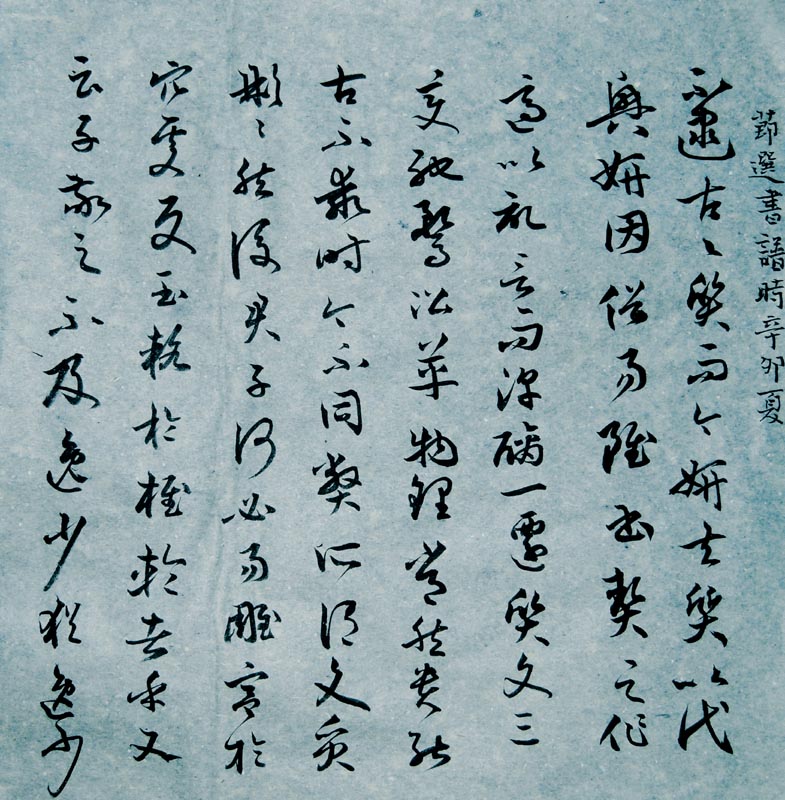 節選書譜時辛卯夏
不逮古々質而今妍夫質以代
興妍因俗易雖書契之作
適以記言而淳醨一遷質文三
變馳騖沿革物理常然貴能
古不乖時今不同弊所謂文質
彬々然後君子何必易雕宮於
穴處反玉輅於椎輪者乎又
云子敬之不及逸少猶逸少